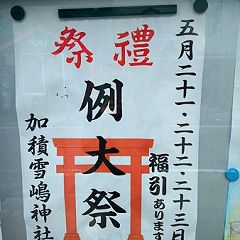 五月二十一・二十二・二十三日
祭禮
例大祭
福引あります
加積雪嶋神社